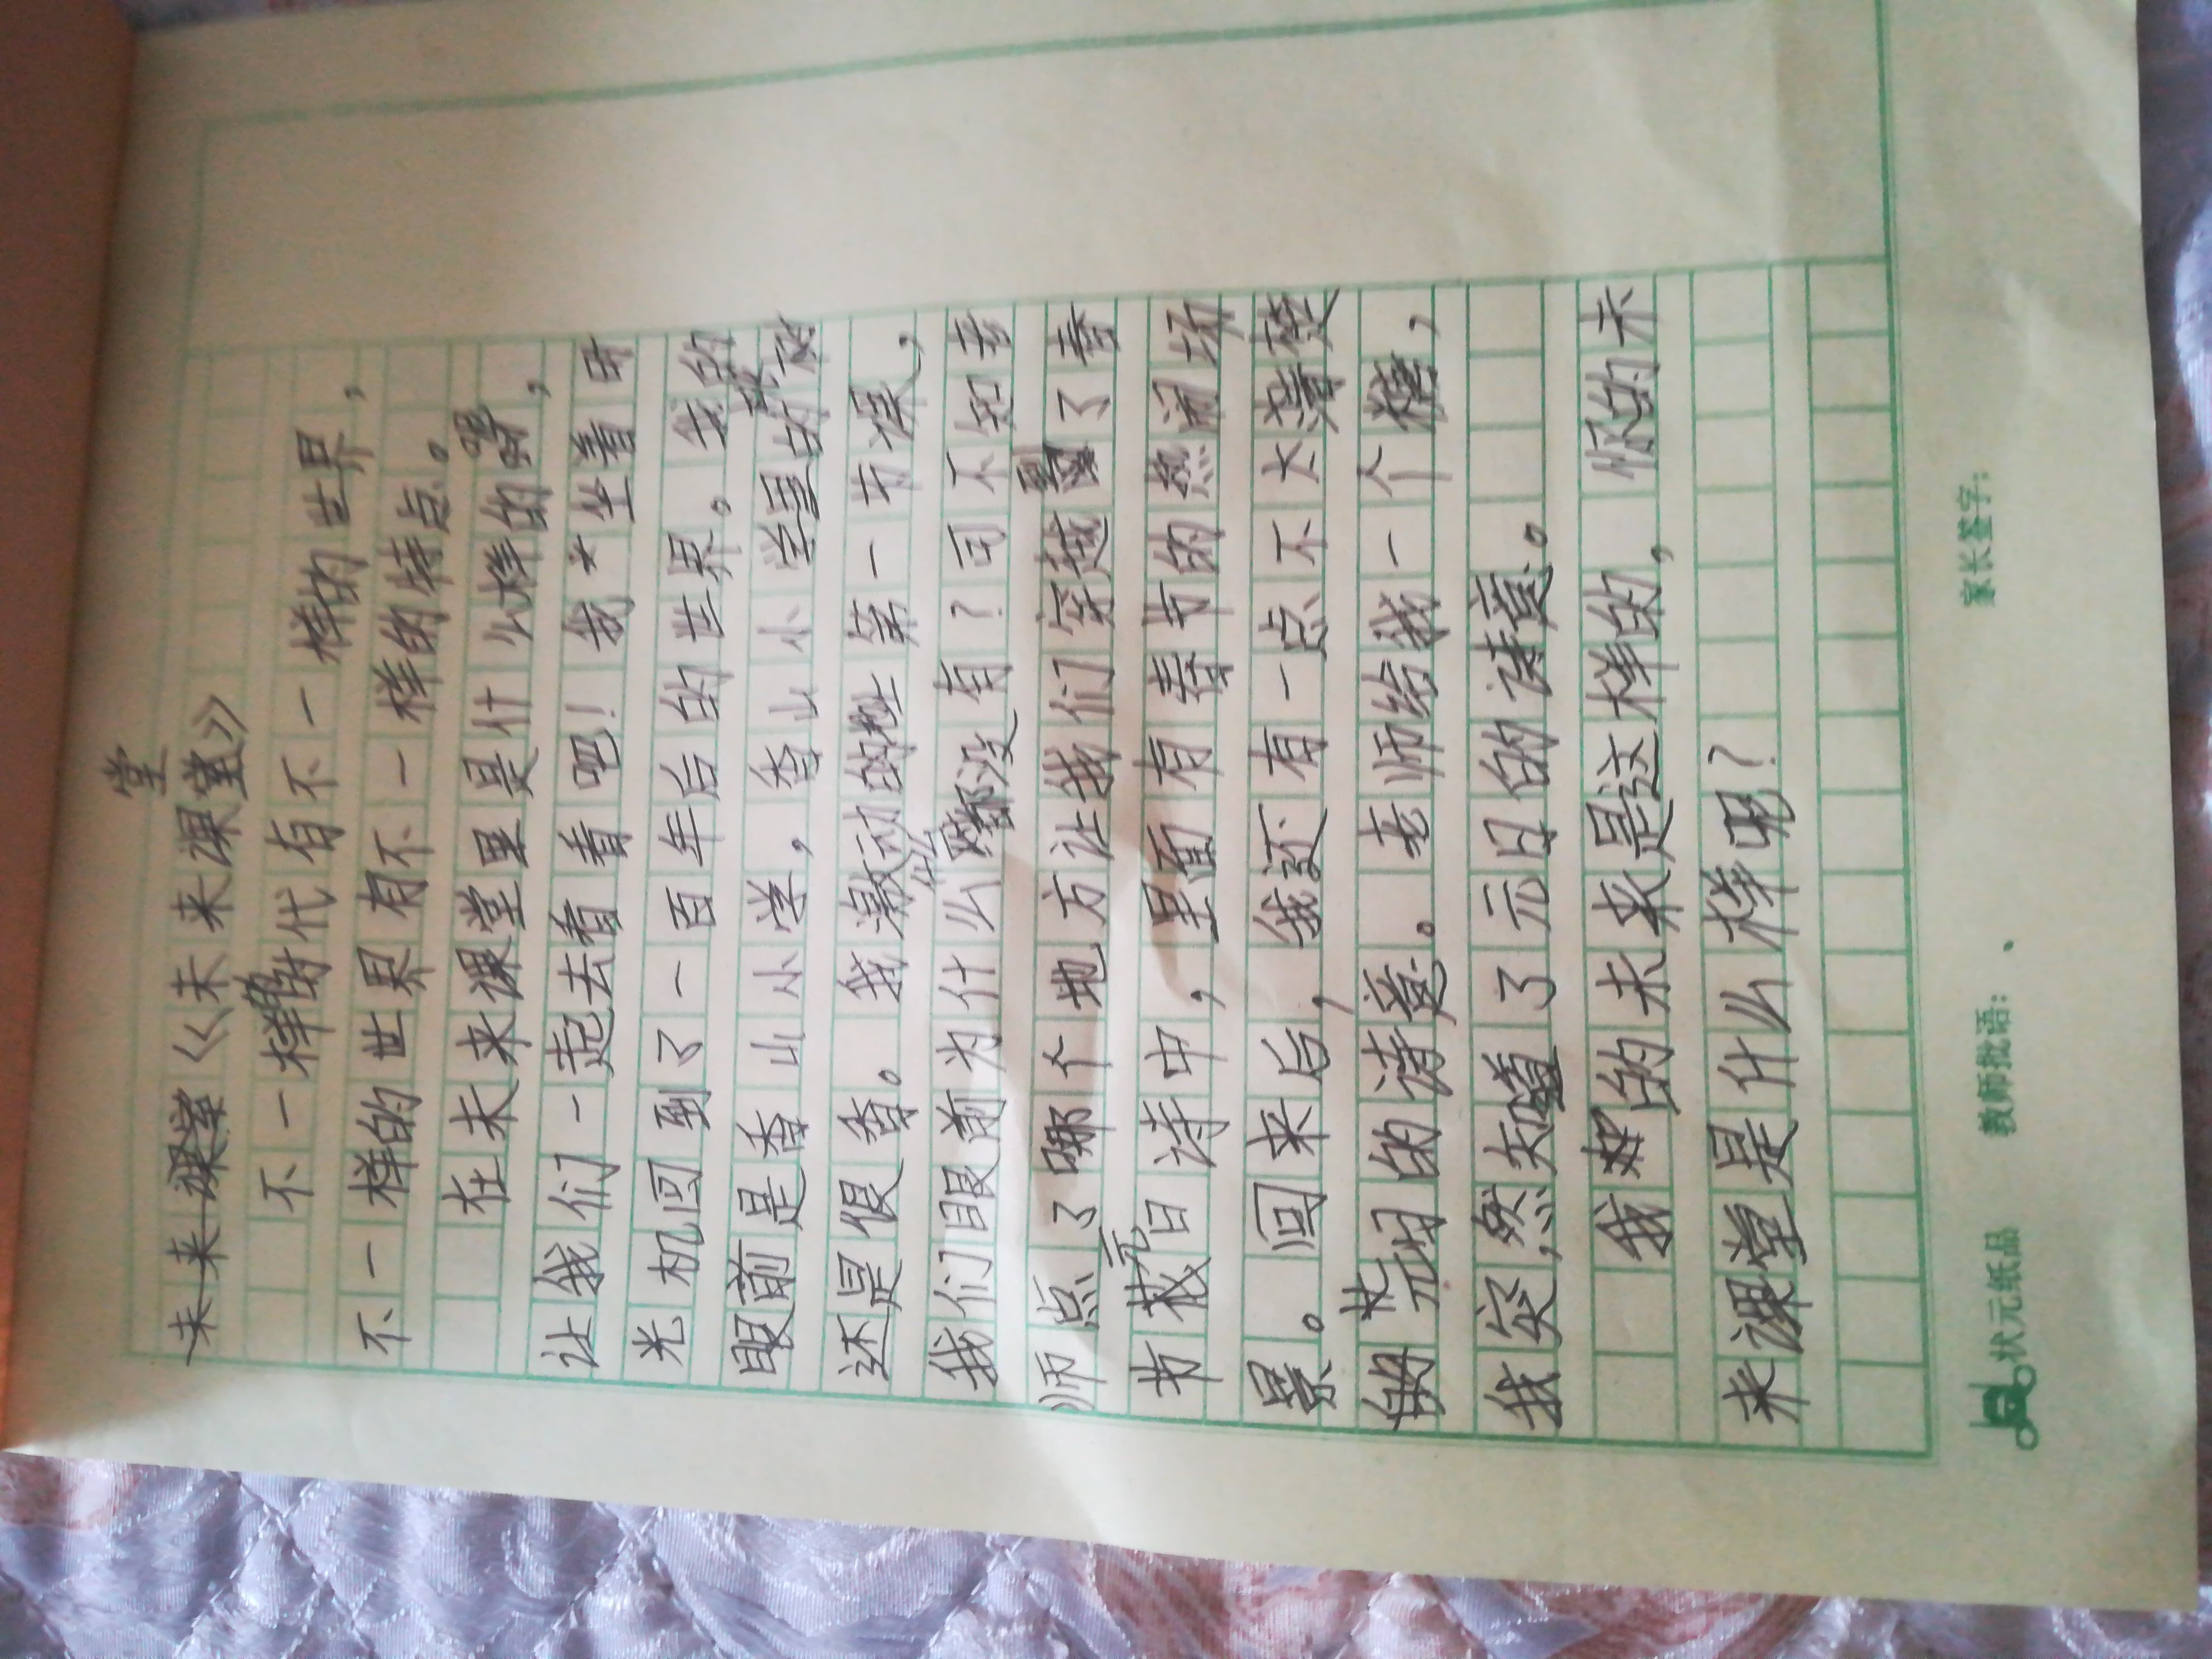 堂
未来课堂《未来课堂》
不一样的时代有不一样的世界，
不一样的世界有不一样的特点。
在未来课堂里是什么样的呢，
让我们一起去看看吧！我*坐着时
光机回到了一百年后的世界。我的
眼前是香山小学，香山小学里的
还是很香。我激动的地第一节课，
我们眼前为什么都没有？可不知老
师点了哪个地方让我们穿越到了春
节元日诗中，里面有春节的热闹场
景。回来后，我还有一点不太懂
元日的诗意。老师给我一个糖，
我突然知道了元日的诗意。
我的未来是这样的，你的未
来课堂是什么样呢？
状元纸品 教师批语： 家长签字：